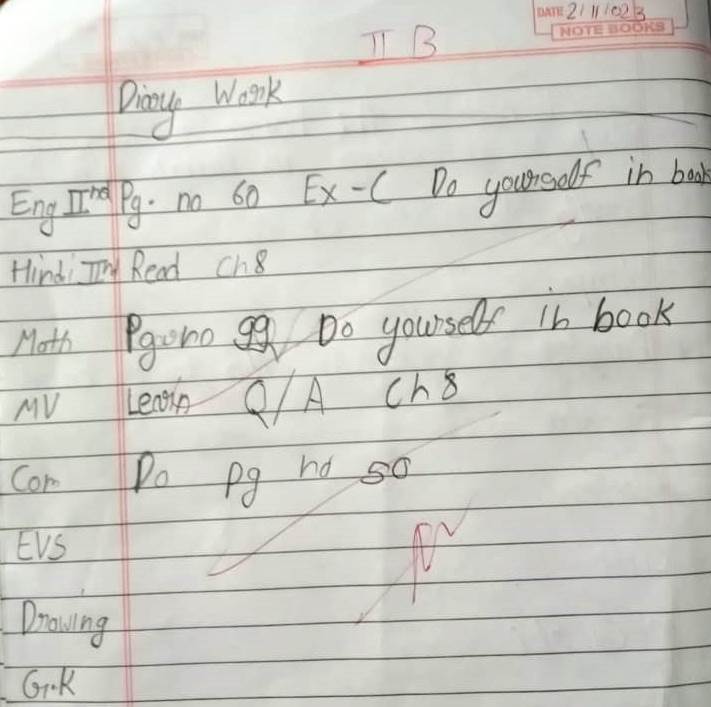 DATE 2/11/023
NOTE BOOKS
II B
Diary Work
Eng IInd Pg. no 60 Ex-C Do yourself in book
Hindi IInd Read Ch 8
Math Pg no 99 Do yourself in book
MV Learn Q/A Ch 8
Com Do pg no 50
EVS
Drawing
G.K